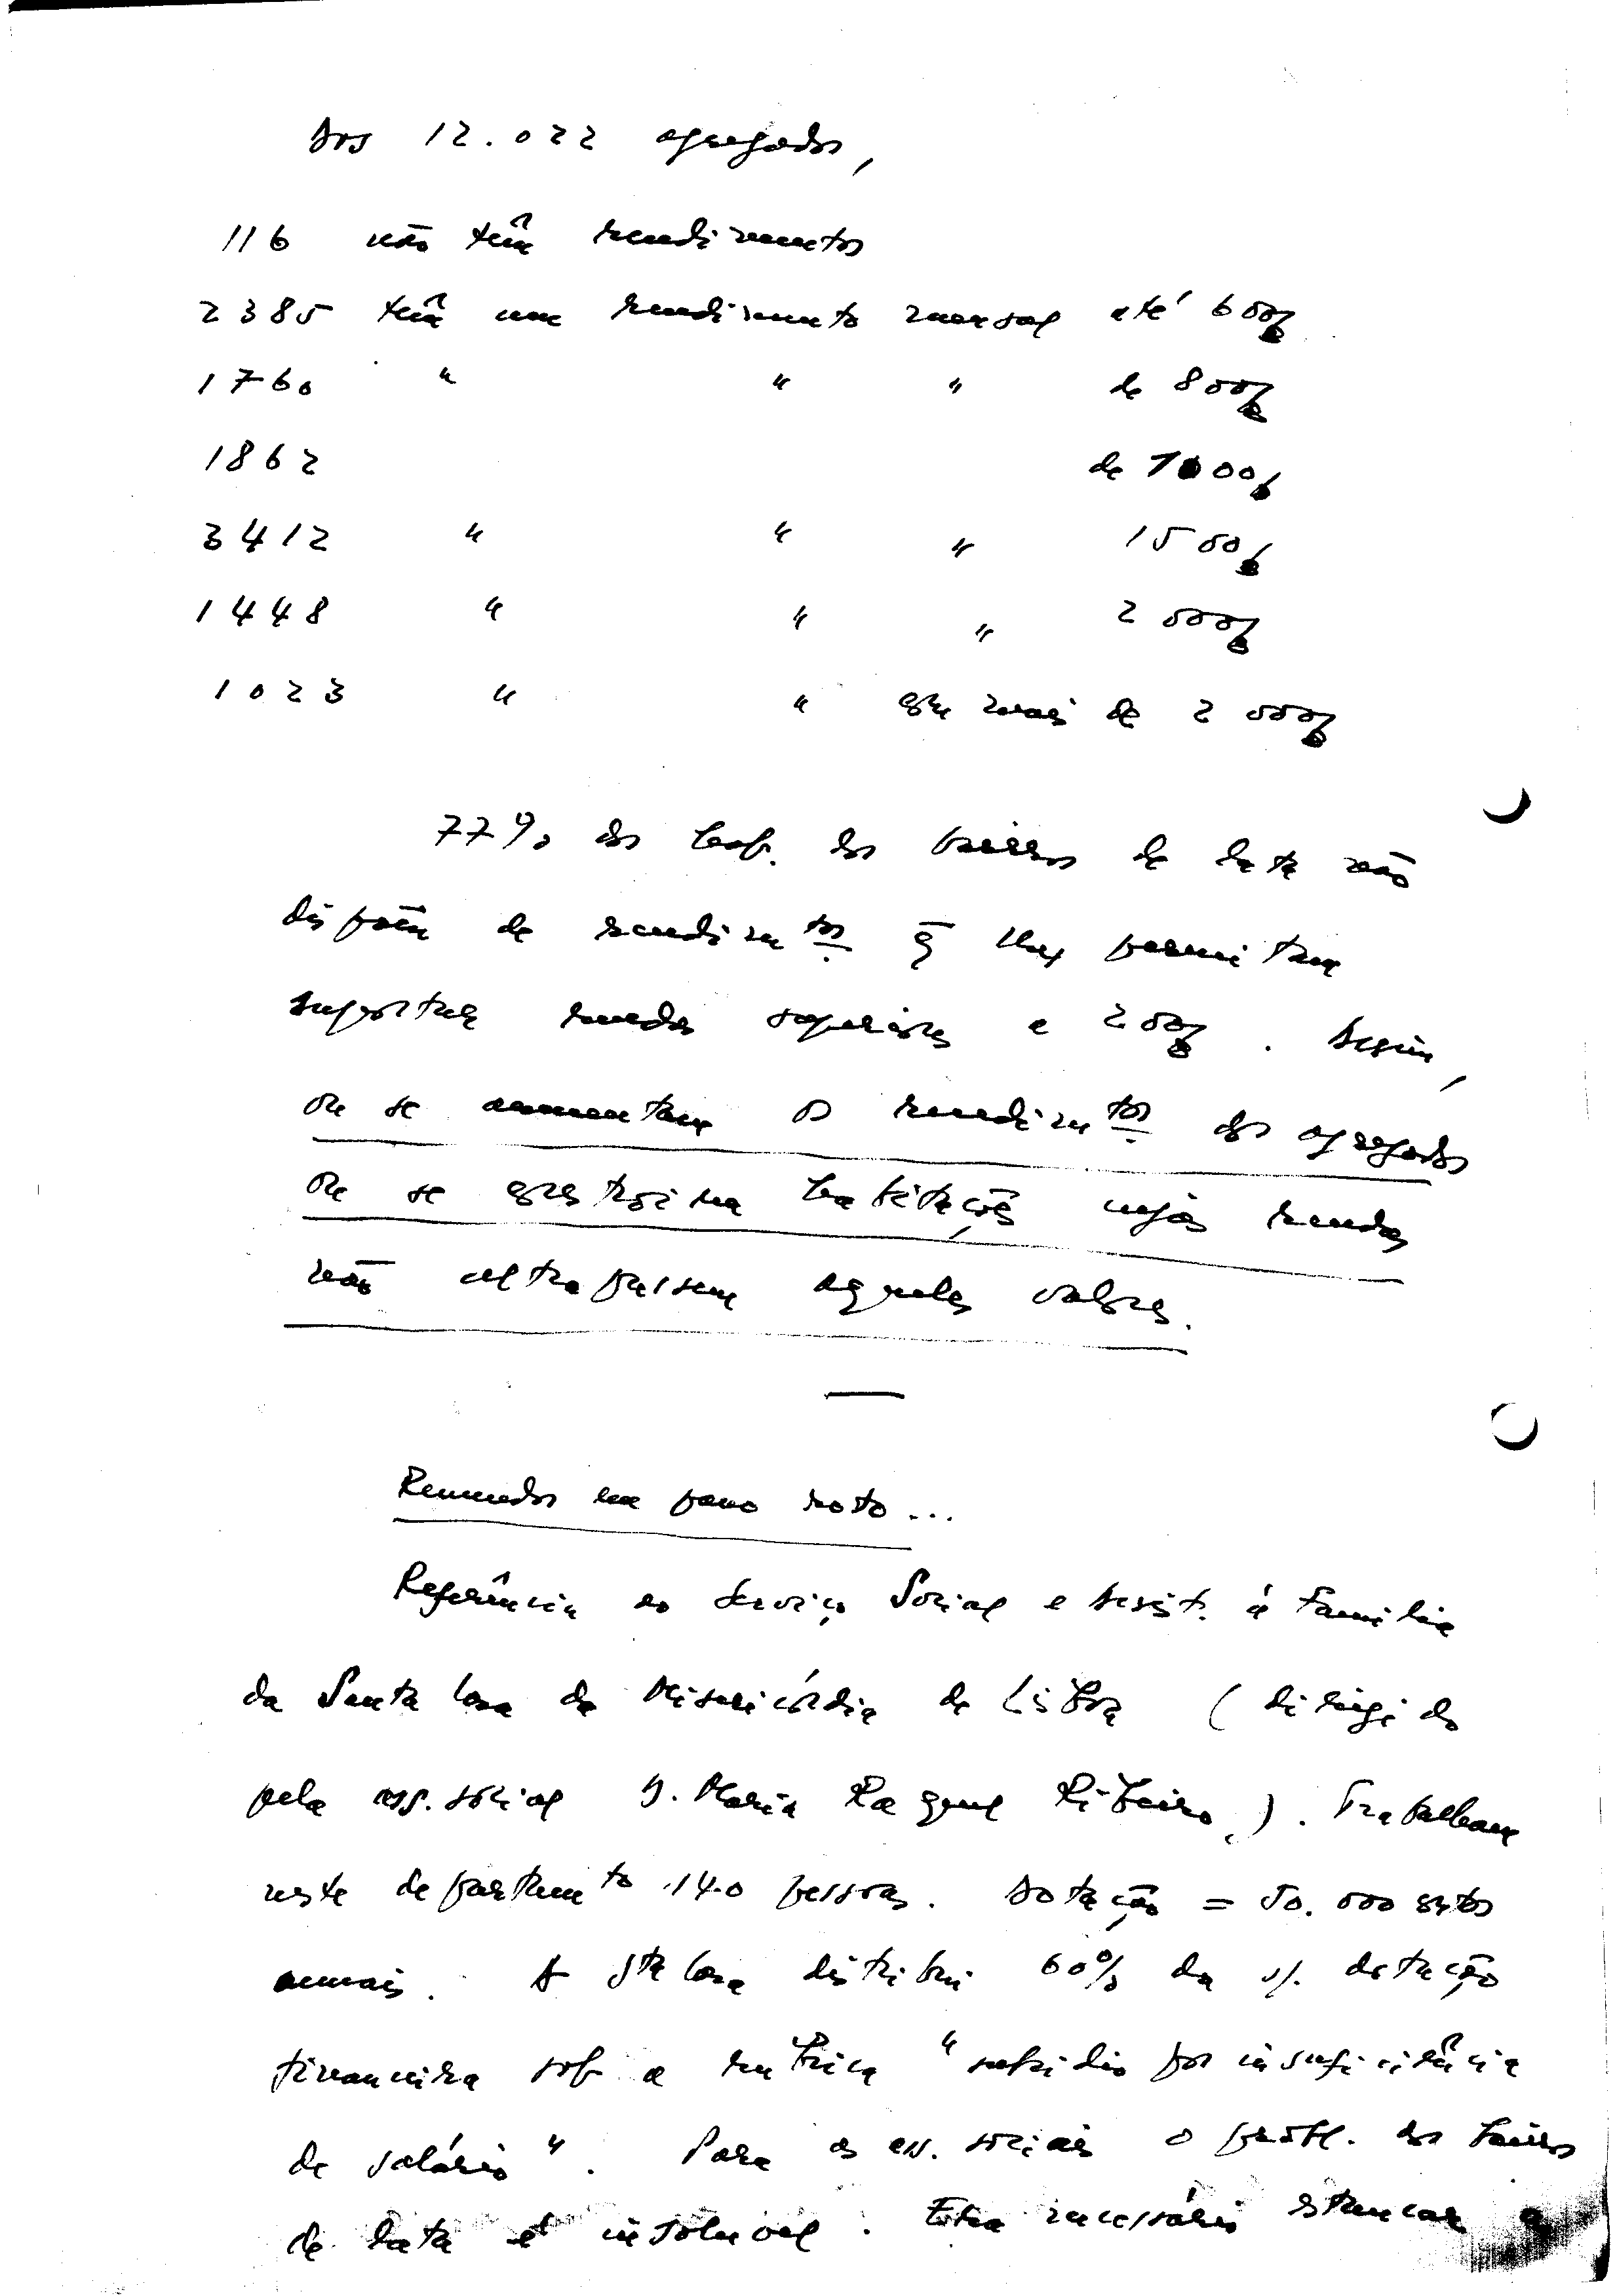 Dos 12.022 agregados,
116 não têm rendimentos
2385 têm um rendimento mensal até 600$
1760 " " " de 800$
1862 de 1000$
3412 " " " 1500$
1448 " " " 2000$
1023 " " que mais de 2000$
77% dos hab. dos bairros de lata não
dispõem de rendimtos q̄ lhes permitam
suportar rendas superiores a 200$. Assim,
ou se aumentam os rendimtos dos agregados
ou se constroem habitações cujas rendas
não ultrapassem aqueles valores.
Remendos em pano roto...
Referência ao Serviço Social e Assist. à Família
da Santa Casa da Misericórdia de Lisboa (dirigido
pela ass. social D. Maria Raquel Ribeiro). Trabalham
neste departamto 140 pessoas. Dotação = 50.000 contos
anuais. A Sta Casa distribui 60% da s/. dotação
financeira sob a rubrica "subsídio por insuficiência
de salário". Para as ass. sociais o probl. dos bairros
de lata é insolúvel. Era necessário estancar a